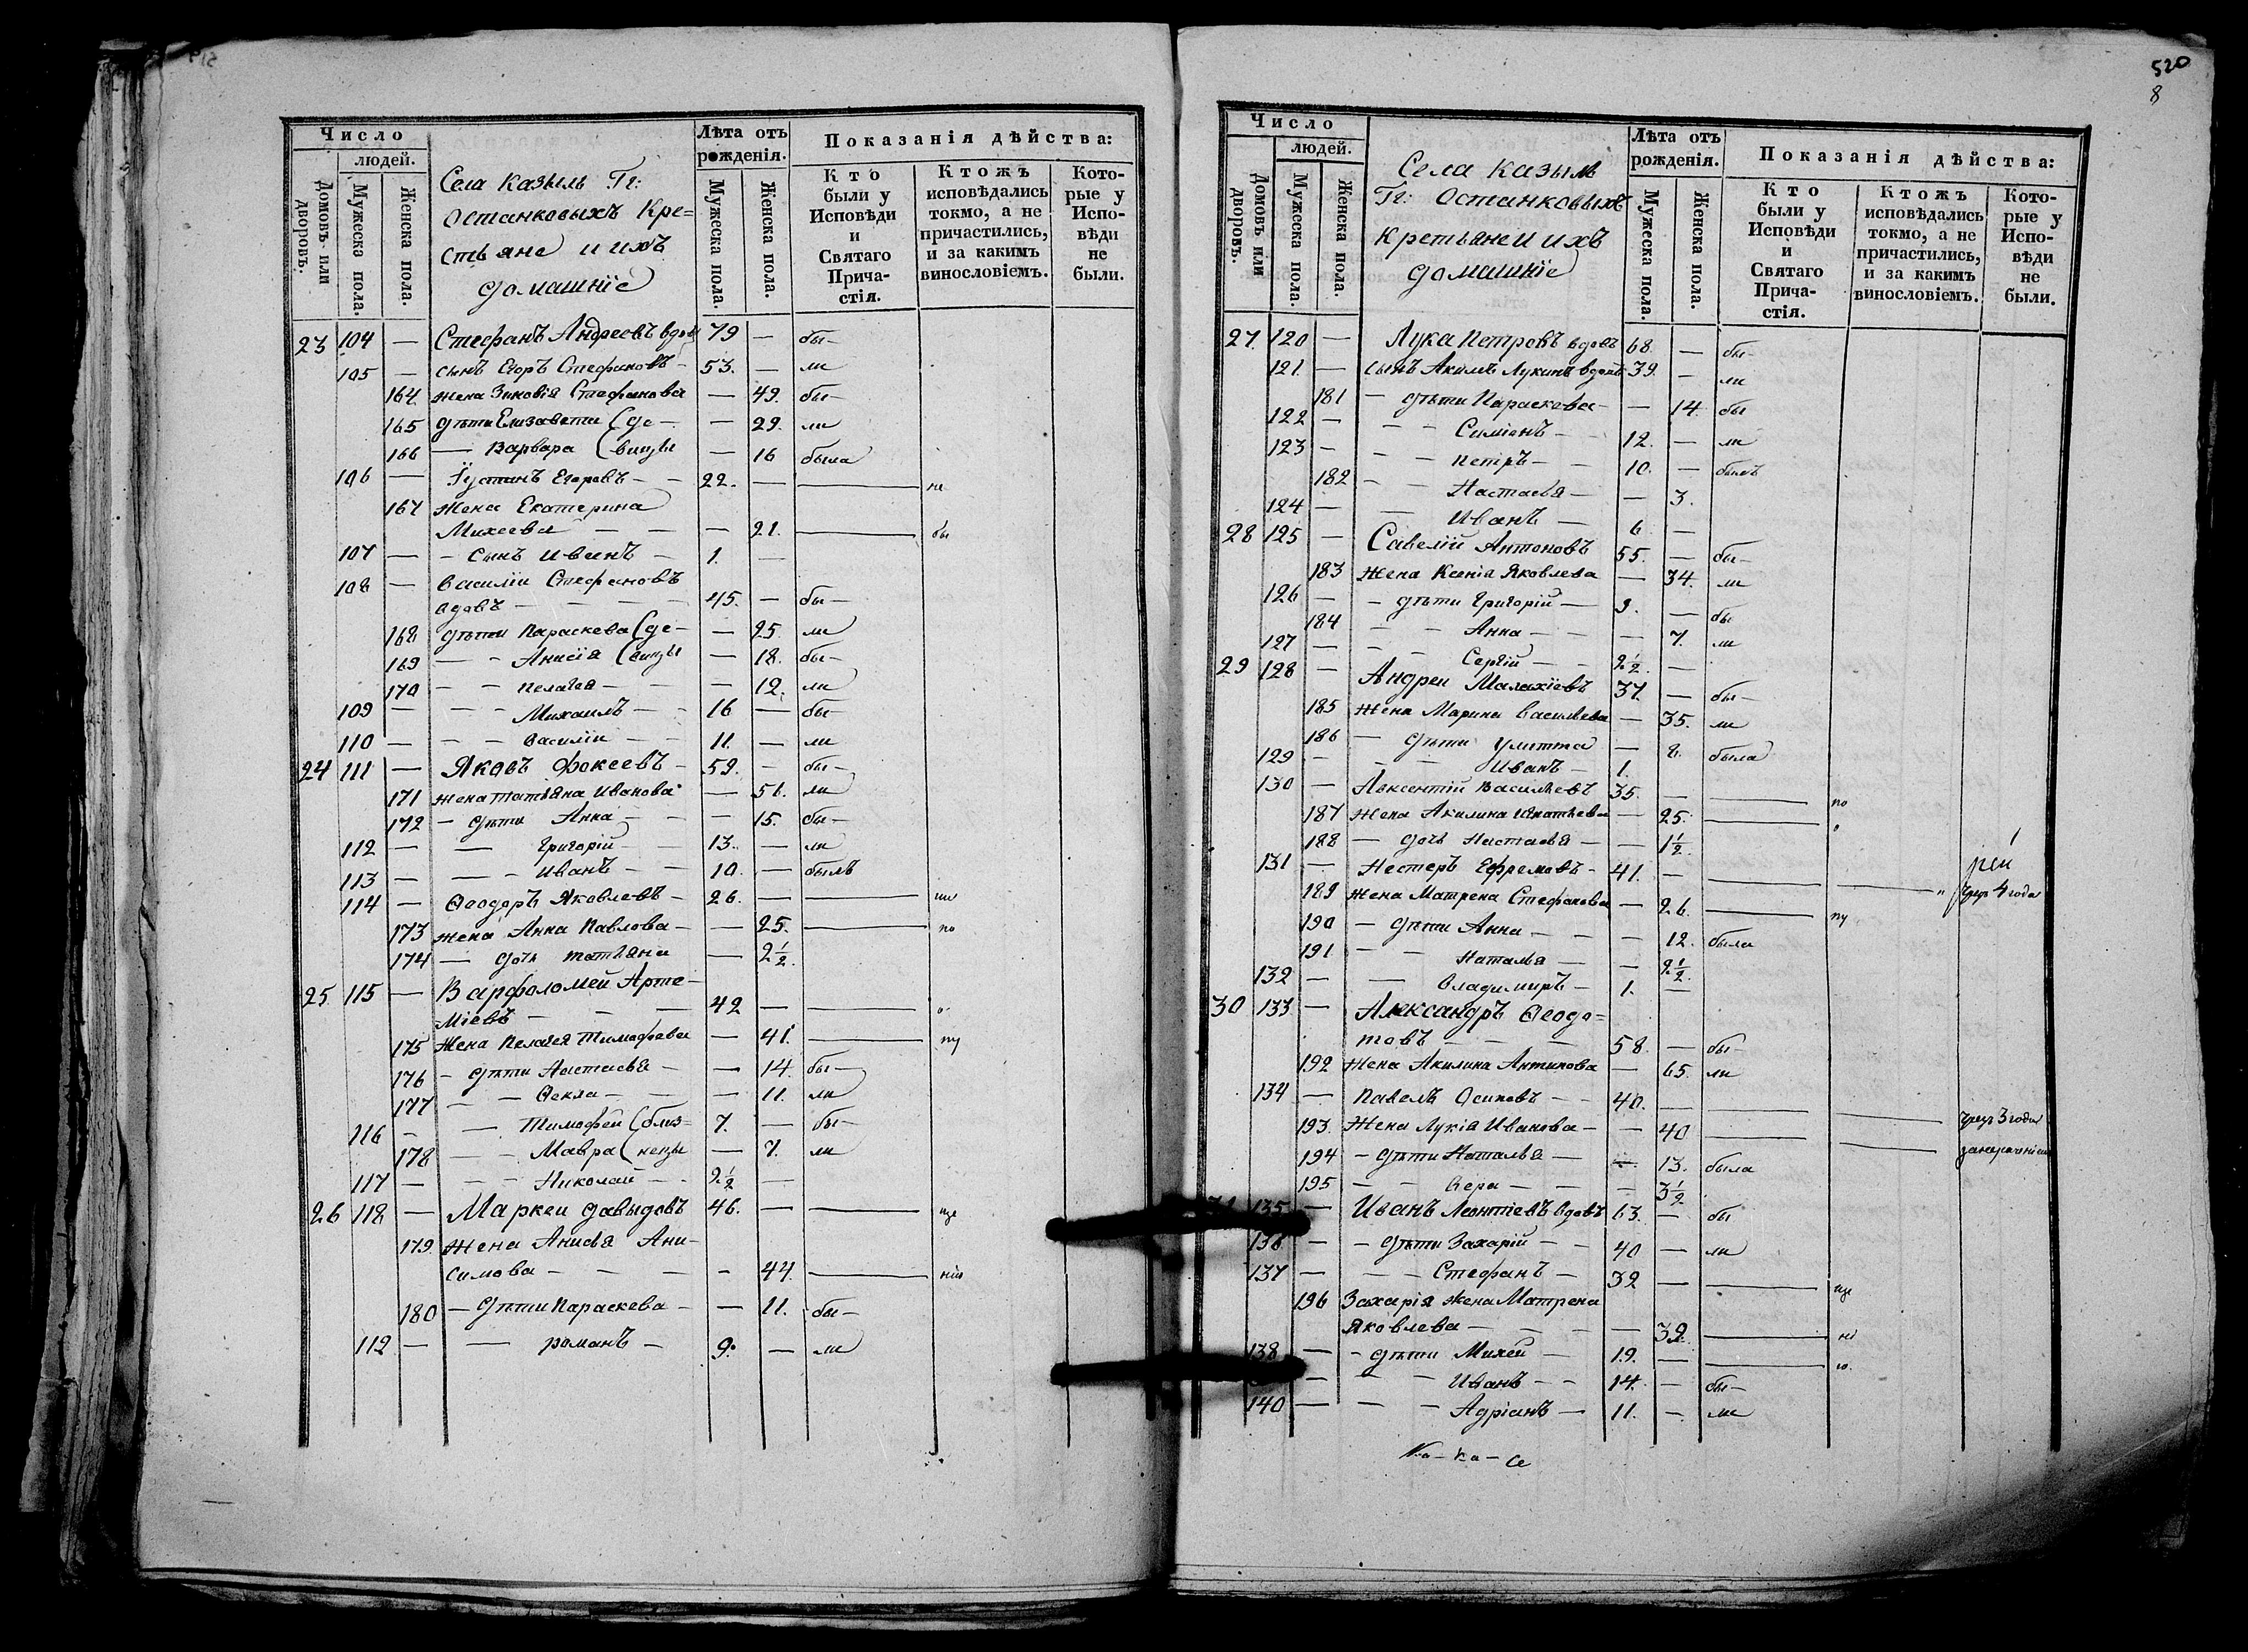 520
8
Число
людей.
Домовъ или дворовъ.
Мужеска пола.
Женска пола.
Села Казыль Гг:
Останковыхъ Кре=
стьяне и ихъ
домашніе
Лѣта отъ рожденія.
Мужеска пола.
Женска пола.
Показанія дѣйства:
Кто были у Исповѣди и Святаго Прича-стія.
Ктожъ исповѣдались токмо, а не причастились, и за какимъ винословіемъ.
Кото-рые у Испо-вѣди не были.
23 104 — Стефанъ Андреевъ вдов 79 — бы—
105 — сынъ Егоръ Стефановъ — 53. — ли
164 жена Зиновія Стефанова — 49. бы—
165 дѣти Елизавета (де — — 29. ли
166 — Варвара (вицы — 16 была
106 — Іустинъ Егоровъ — — 22. — — не
167 жена Екатерина
Михеева — — — 21. — бы
107 — — сынъ Иванъ — 1. —
108 — Василіи Стефановъ
вдовъ — — — — 45. — бы—
168 дѣти Параскева (де— — 25 ли
169 — — Анисія (вицы — 18. бы—
170 — — Пелагея — — — 12. ли
109 — — — Михаилъ — — 16 — бы—
110 — — — Василіи — — 11. — ли
24 111 — Яковъ Фокеевъ — 59. — бы—
171 жена Татьяна Иванова — 51. ли
172 — дѣти Анна — — — 15. бы—
112 — — Григорій — — 13. — ли
113 — — — Иванъ — — 10. — былъ
114 — Ѳеодоръ Яковлевъ — 26. — —
173 жена Анна Павлова — — 25. — по
174 — дочь Татьяна — 2½
25 115 — Варфоломей Арте—
міевъ — — — 42 — — о
175 жена Пелагея Тимофеева — 41. — пу
176 — дѣти Настасья — — 14. бы—
177 — — Ѳекла — — — 11. ли
116 — — Тимофей (близ= 7. — бы—
178 — — Мавра (нецы — 7. ли
117 — — — Николай — — 2½ —
26 118 — Маркеи Давыдовъ 46. — — ще
179 жена Анисья Ани—
симова — — — — 44. — нію
180 — дѣти Параскева — — 11. бы—
119 — — романъ — 9. — ли
Число
людей.
Домовъ или дворовъ.
Мужеска пола.
Женска пола.
Села Казыль
Гг: Останковыхъ
Кретьяне и ихъ
домашніе
Лѣта отъ рожденія.
Мужеска пола.
Женска пола.
Показанія дѣйства:
Кто были у Исповѣди и Святаго Прича-стія.
Ктожъ исповѣдались токмо, а не причастились, и за какимъ винословіемъ.
Кото-рые у Испо-вѣди не были.
27. 120 — Лука Петровъ вдовъ 68. — бы—
121. — сынъ Акимъ Лукинъ вдовъ 39. — ли
181 — дѣти Параскева — — 14. бы
122 — — — Симіонъ — 12. — ли
123 — — — Петръ — — 10. — былъ
182 — — Настасья — — 3.
124 — — Иванъ — 6. —
28 125 — Савелій Антоновъ 55. — бы—
183 жена Ксенія Яковлева — 34. ли
126 — — дѣти Григорій — 9. — бы
184 — — Анна — — — 7. ли
127 — — — Сергій — — 2½ —
29 128 — Андреи Малахіевъ 37. — бы—
185 жена Марина Васильева — 35. ли
186 — дѣти Улитта — 8. была
129 — — — Иванъ — 1.
130 — Авксентій Васильевъ 35. — — по
187 жена Акилина Игнатьева — 25. —
188 — дочь Настасья — — 1½
131 — Нестеръ Ефремовъ — 41. — — — чрез 4 года
189 жена Матрена Стефанова — 26. — пу
190 — дѣти Анна — — — 12. была
191 — — Наталья — — 2½
132 — — Владимиръ — 1. —
30 133 — Александръ Ѳеодо=
товъ — — — 58. — бы—
192 жена Акилина Антипова — 65. ли
134 — Павелъ Осиповъ — — 40. — — — чрез 3 года
193. жена Лукія Иванова — — 40 — —
194 — дѣти Наталья — — 13. была
195 — — Вера — — — 3½
135 — Иванъ Леонтіевъ вдовъ 63. — бы
136 — — дѣти Захарій — — 40 — ли
137 — — — Стефанъ — 32 — — ще
196 Захарія жена Матрена
Яковлева — — — — 39. — ні
138 — — дѣти Михеи — 19. — — ю.
— — — Иванъ — — 14. — бы—
140 — — — Адріанъ — 11. — ли